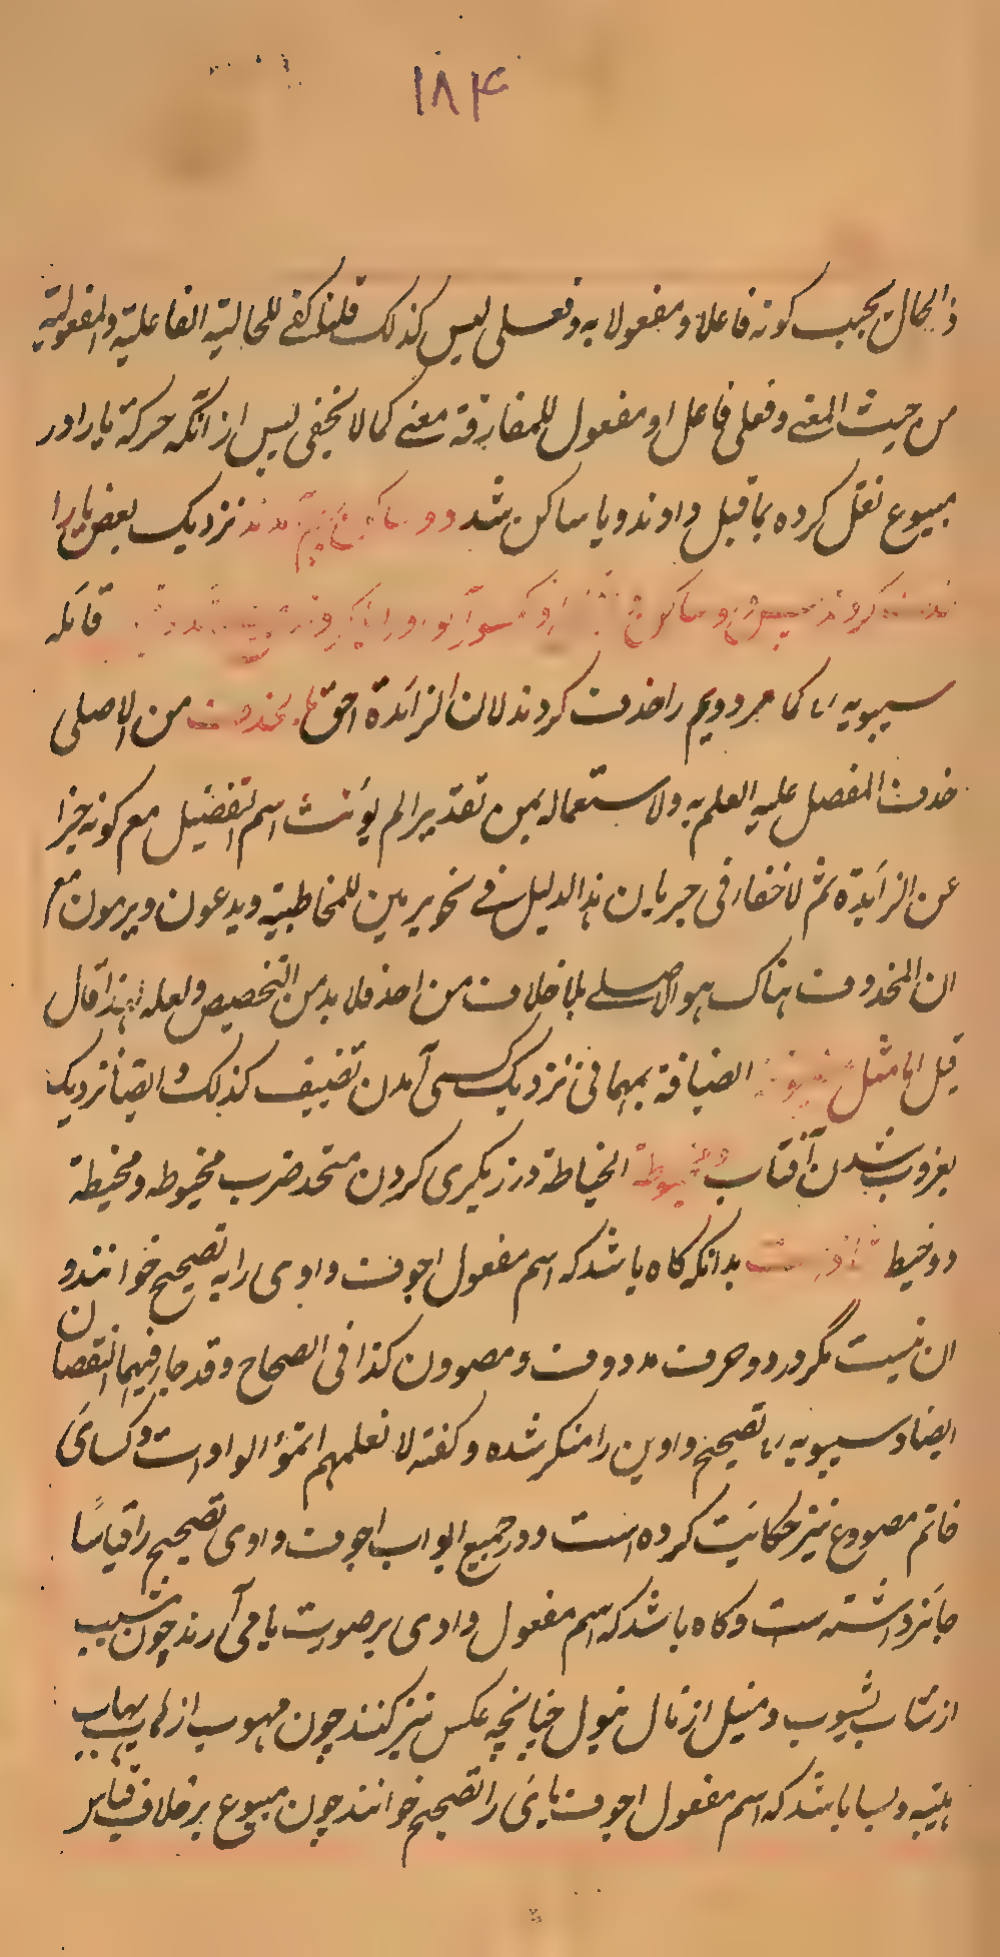 ۱۸۴
ذا الحال یجب کونه فاعلا و مفعولا به وفعلی لیس کذلک قلنا کفی للحالیة الفاعلیة والمفعولیة
من حیث المعنے وفعلی فاعل او مفعول للمفارقة معنے کما لا یخفی پس از آنکه حرکة یا را در
مبیوع نقل کرده بماقبل دادند و یا ساکن شد دو ساکن بهم آمدند نزدیک بعض یا را
قانکه
سیبویه کما مر دویم را حذف کردند لان الزائدة احق بالحذف من الاصلی
حذف المفصل علیه العلم به ولاستعماله بمن تقدیرا لم یؤنث اسم التفضیل مع کونه خبرا
عن الزائدة ثم لا خفاء فی جریان هذا الدلیل فے نحو یرمین للمخاطبة ویدعون ویرمون مع
ان المحذوف هناک هو الاصلے بلا خلاف من احد فلا بد من التخصیص ولعله لهذا قال
قیل الامثل الضیافة بمهمانی نزدیک کسی آمدن تضییف کذلک و ایضا نزدیک
بغروب شدن آفتاب و مخیوطة الخیاطة درزیگری کردن متحد ضرب مخیوطه ومخیطة
دوخیط بدانکه گاه باشد که اسم مفعول اجوف واوی را به تصحیح خوانند و
ان نیست مگر در دو حرف مدووف و مصوون کذا فی الصحاح وقد جاء فیهما النقصان
ایضا و سیبویه تصحیح واوین را منکر شده و گفته لا نعلمهم اتموا الواوات و کسائی
خاتم مصووغ نیز حکایت کرده است و در جمیع ابواب اجوف واوی تصحیح را قیاسا
جائز داشته است و گاه باشد که اسم مفعول واوی بر صورت یا می آرند چون مشیب
از شاب یشوب و منیل از نال ینول چنانچه عکس نیز کنند چون مهوب از هاب یهاب
هیبة و بسا باشد که اسم مفعول اجوف یائی را تصحیح خوانند چون مبیوع بر خلاف قیاس